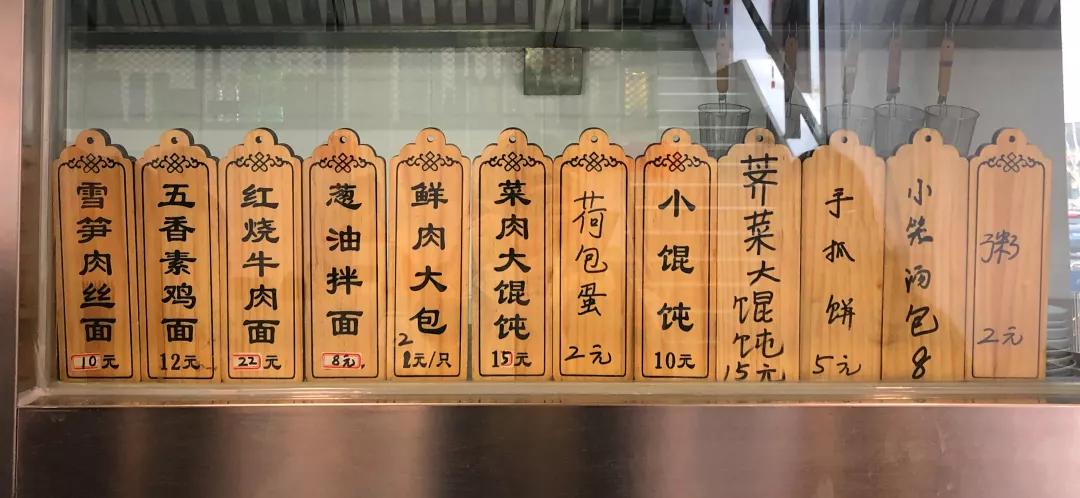 雪笋肉丝面
10元
五香素鸡面
12元
红烧牛肉面
22元
葱油拌面
8元
鲜肉大包
2元/只
菜肉大馄饨
15元
荷包蛋
2元
小馄饨
10元
荠菜大馄饨
15元
手抓饼
5元
小笼汤包
8
粥
2元